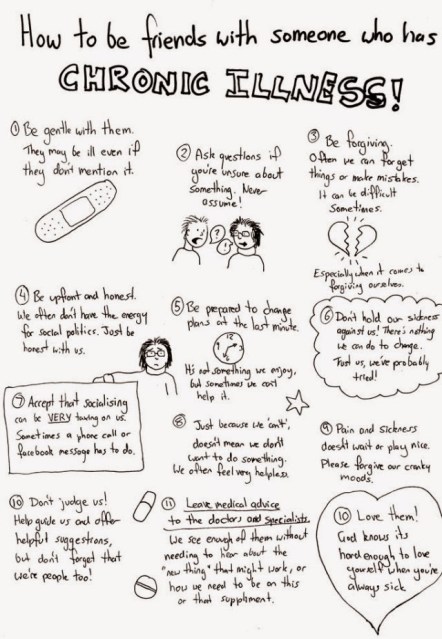 How to be friends with someone who has
CHRONIC ILLNESS!
① Be gentle with them.
They may be ill even if
they don't mention it.
② Ask questions if
you're unsure about
something. Never
assume!
? !?
③ Be forgiving.
Often we can forget
things or make mistakes.
It can be difficult
sometimes.
Especially when it comes to
forgiving ourselves.
④ Be upfront and honest.
We often don't have the energy
for social politics. Just be
honest with us.
⑤ Be prepared to change
plans at the last minute.
It's not something we enjoy,
but sometimes we can't
help it.
⑥ Don't hold our sickness
against us! There's nothing
we can do to change.
Trust us, we've probably
tried!
⑦ Accept that socialising
can be VERY taxing on us.
Sometimes a phone call or
facebook message has to do.
⑧ Just because we 'can't',
doesn't mean we don't
want to do something.
We often feel very helpless.
⑨ Pain and sickness
doesn't wait or play nice.
Please forgive our cranky
moods.
⑩ Don't judge us!
Help guide us and offer
helpful suggestions,
but don't forget that
we're people too!
⑪ Leave medical advice
to the doctors and specialists.
We see enough of them without
needing to hear about the
"new thing" that might work, or
how we need to be on this
or that suppliment.
⑩ Love them!
God knows its
hard enough to love
yourself when you're
always sick